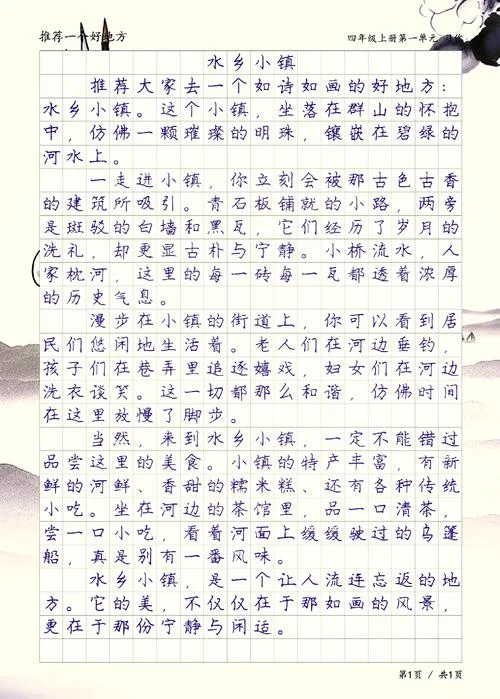 推荐一个好地方
四年级上册第一单元 习作
水乡小镇
推荐大家去一个如诗如画的好地方：
水乡小镇。这个小镇，坐落在群山的怀抱
中，仿佛一颗璀璨的明珠，镶嵌在碧绿的
河水上。
一走进小镇，你立刻会被那古色古香
的建筑所吸引。青石板铺就的小路，两旁
是斑驳的白墙和黑瓦，它们经历了岁月的
洗礼，却更显古朴与宁静。小桥流水，人
家枕河，这里的每一砖每一瓦都透着浓厚
的历史气息。
漫步在小镇的街道上，你可以看到居
民们悠闲地生活着。老人们在河边垂钓，
孩子们在巷弄里追逐嬉戏，妇女们在河边
洗衣谈笑。这一切都那么和谐，仿佛时间
在这里放慢了脚步。
当然，来到水乡小镇，一定不能错过
品尝这里的美食。小镇的特产丰富，有新
鲜的河鲜、香甜的糯米糕、还有各种传统
小吃。坐在河边的茶馆里，品一口清茶，
尝一口小吃，看着河面上缓缓驶过的乌篷
船，真是别有一番风味。
水乡小镇，是一个让人流连忘返的地
方。它的美，不仅仅在于那如画的风景，
更在于那份宁静与闲适。
第1页 / 共1页